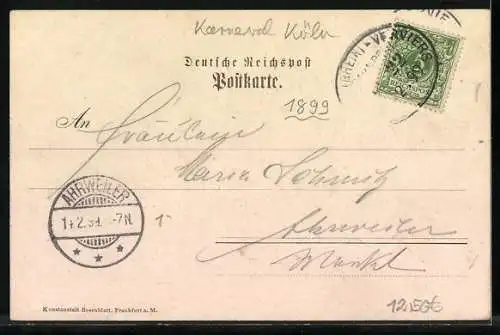 Karneval Köln
Deutsche Reichspost
Postkarte.
1899
VERVIERS
An
Fräulein
Maria Schmitz
Ahrweiler
Markt
AHRWEILER
7N.
Kunstanstalt Rosenblatt, Frankfurt a. M.
12.50€